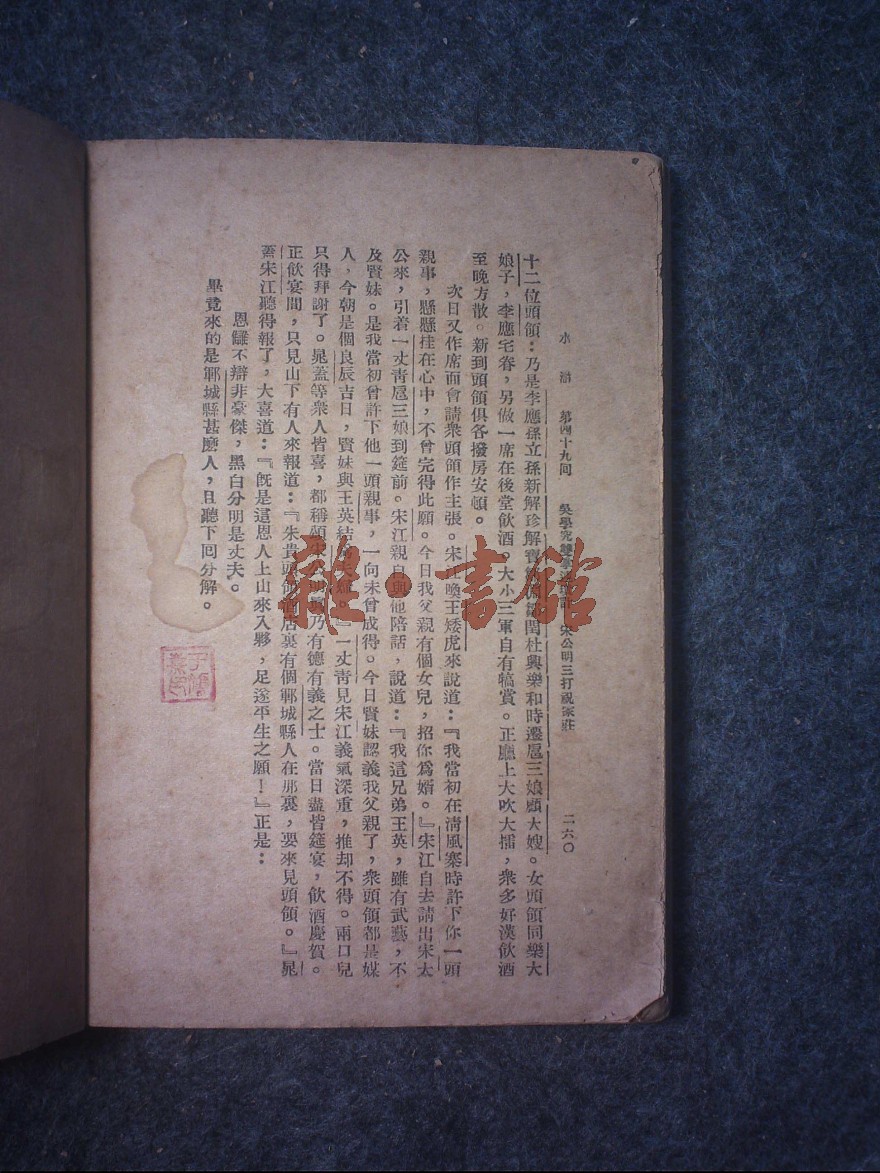 水滸 第四十九回 吳學究雙掌連環計 宋公明三打祝家莊 二六〇
十二位頭領：乃是李應孫立孫新解珍解寶鄒淵鄒閏杜興樂和時遷扈三娘顧大嫂。女頭領同樂大
娘子，李應宅眷，另做一席在後堂飲酒。大小三軍自有犒賞。正廳上大吹大擂，衆多好漢飲酒
至晚方散。新到頭領俱各撥房安頓。
次日又作席面會請衆頭領作主張。宋江喚王矮虎來說道：『我當初在淸風寨時許下你一頭
親事，懸懸挂在心中，不曾完得此願。今日我父親有個女兒，招你爲婿。』宋江自去請出宋太
公來，引着一丈靑扈三娘到筵前。宋江親自與他陪話，說道：『我這兄弟王英，雖有武藝，不
及賢妹。是我當初曾許下他一頭親事，一向未曾成得。今日賢妹認義我父親了，衆頭領都是媒
人，今朝是個良辰吉日，賢妹與王英結爲夫婦。』一丈靑見宋江義氣深重，推却不得。兩口兒
只得拜謝了。晁蓋等衆人皆喜，都稱頌宋公明眞乃有德有義之士。當日盡皆筵宴，飲酒慶賀。
正飲宴間，只見山下有人來報道：『朱貴頭領酒店裏有個鄆城縣人在那裏，要來見頭領。』晁
蓋宋江聽得報了，大喜道：『旣是這恩人上山來入夥，足遂平生之願！』正是：
恩讎不辯非豪傑，黑白分明是丈夫。
畢竟來的是鄆城縣甚麼人，且聽下回分解。
雜·書館